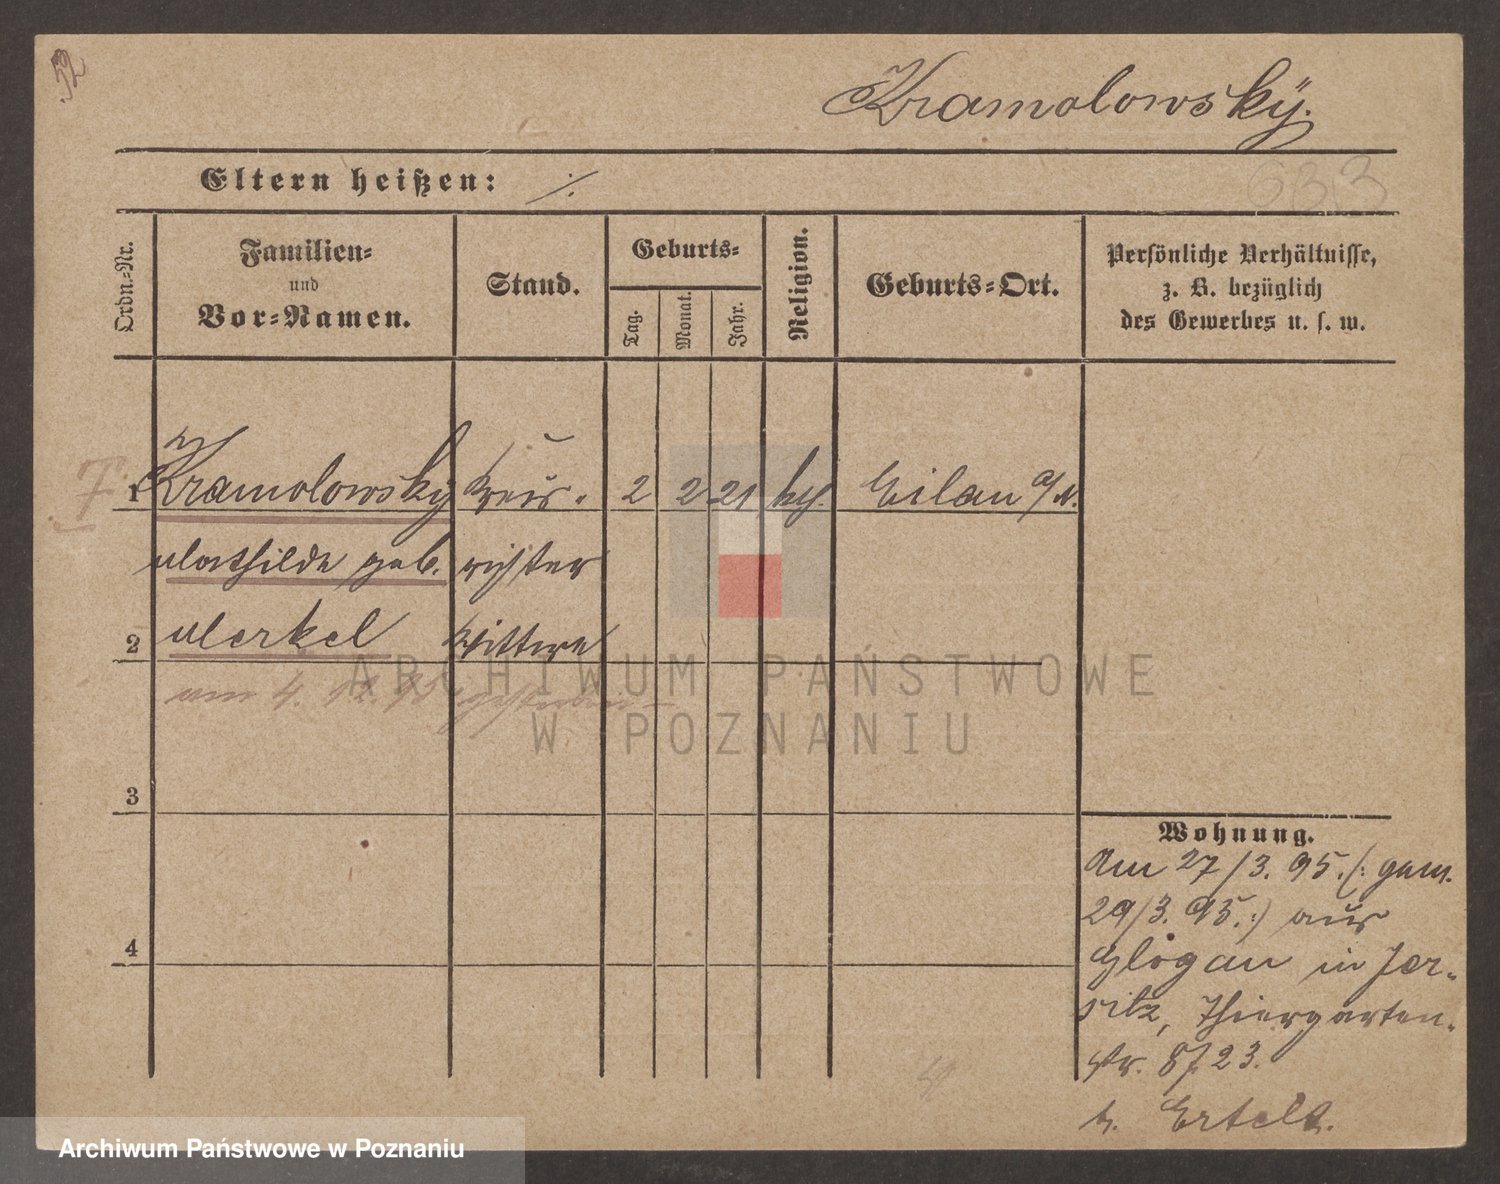 52
Kramolowsky.
Eltern heißen: ./.
633
Ordn.=Nr.
Familien=
und
Vor=Namen.
Stand.
Geburts=
Tag.
Monat.
Jahr.
Religion.
Geburts=Ort.
Persönliche Verhältnisse,
z. B. bezüglich
des Gewerbes u. s. w.
1 Kramolowsky Kreis- 2 2 21 Eilau
Mathilde geb. richter
2 Merkel Wittwe
am 4. 12. gestorben
3
4
Wohnung.
Am 27/3. 95. (: gem.
29/3. 95. :) aus
Glogau in Jer-
sitz, Thiergarten-
str. 23.
b. Ertelt.
ARCHIWUM PAŃSTWOWE
W POZNANIU
Archiwum Państwowe w Poznaniu